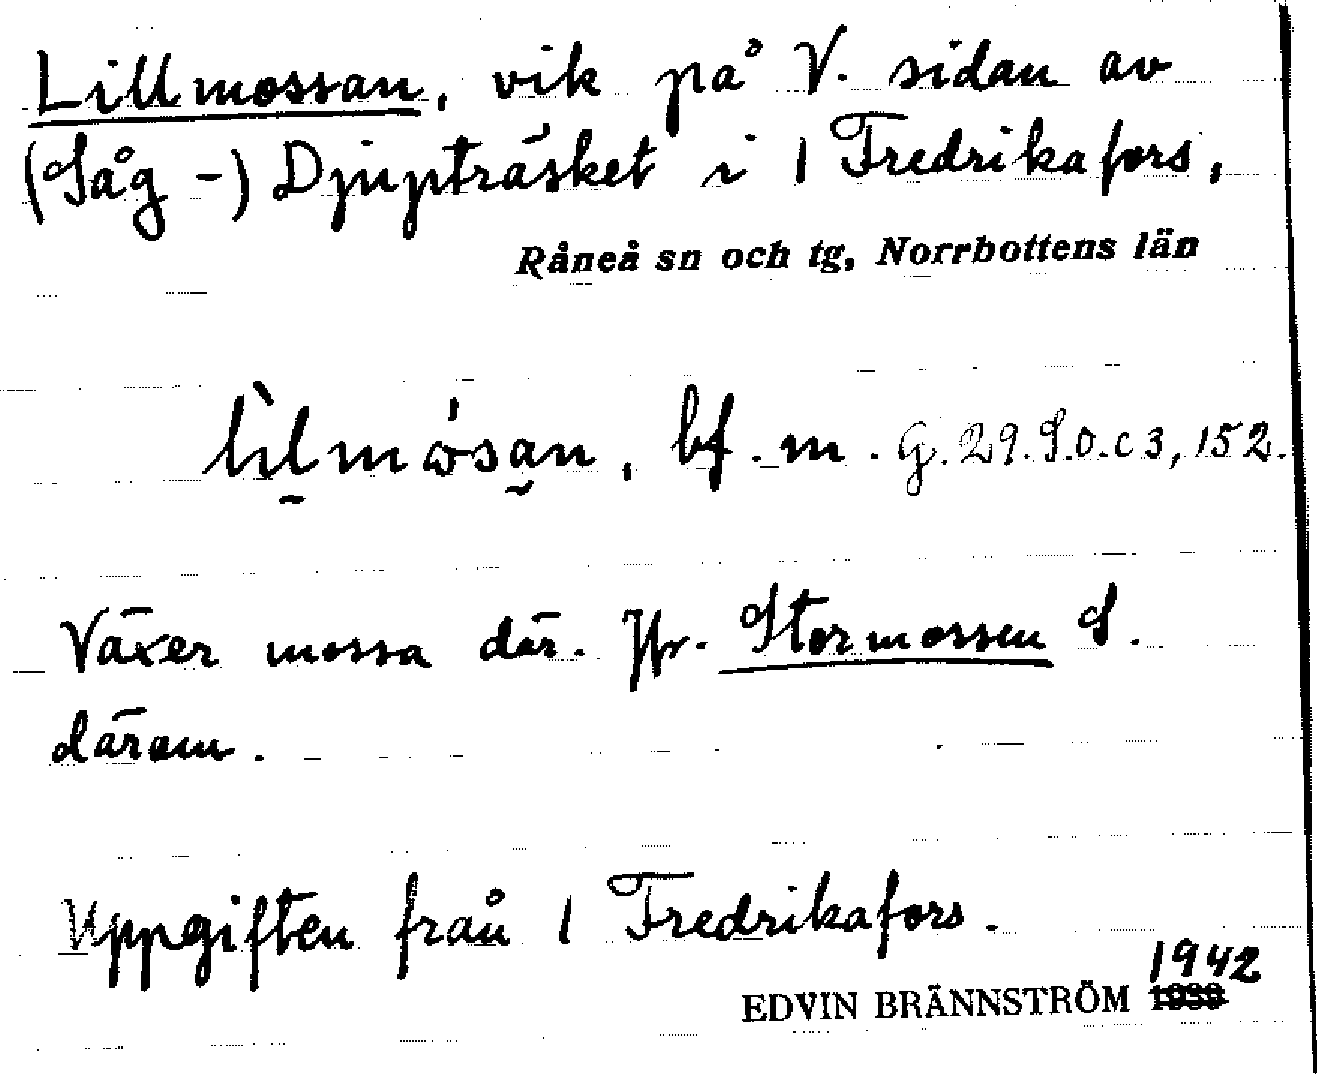 Lillmossan, vik på V. sidan av
(Såg-) Djupträsket i 1 Fredrikafors,
Råneå sn och tg, Norrbottens län
bf. m. G. 29. S.o.c 3, 152.
Växer mossa där. Jfr. Stormossen S.
därom.
Uppgiften från 1 Fredrikafors.
1942
EDVIN BRÄNNSTRÖM 1939